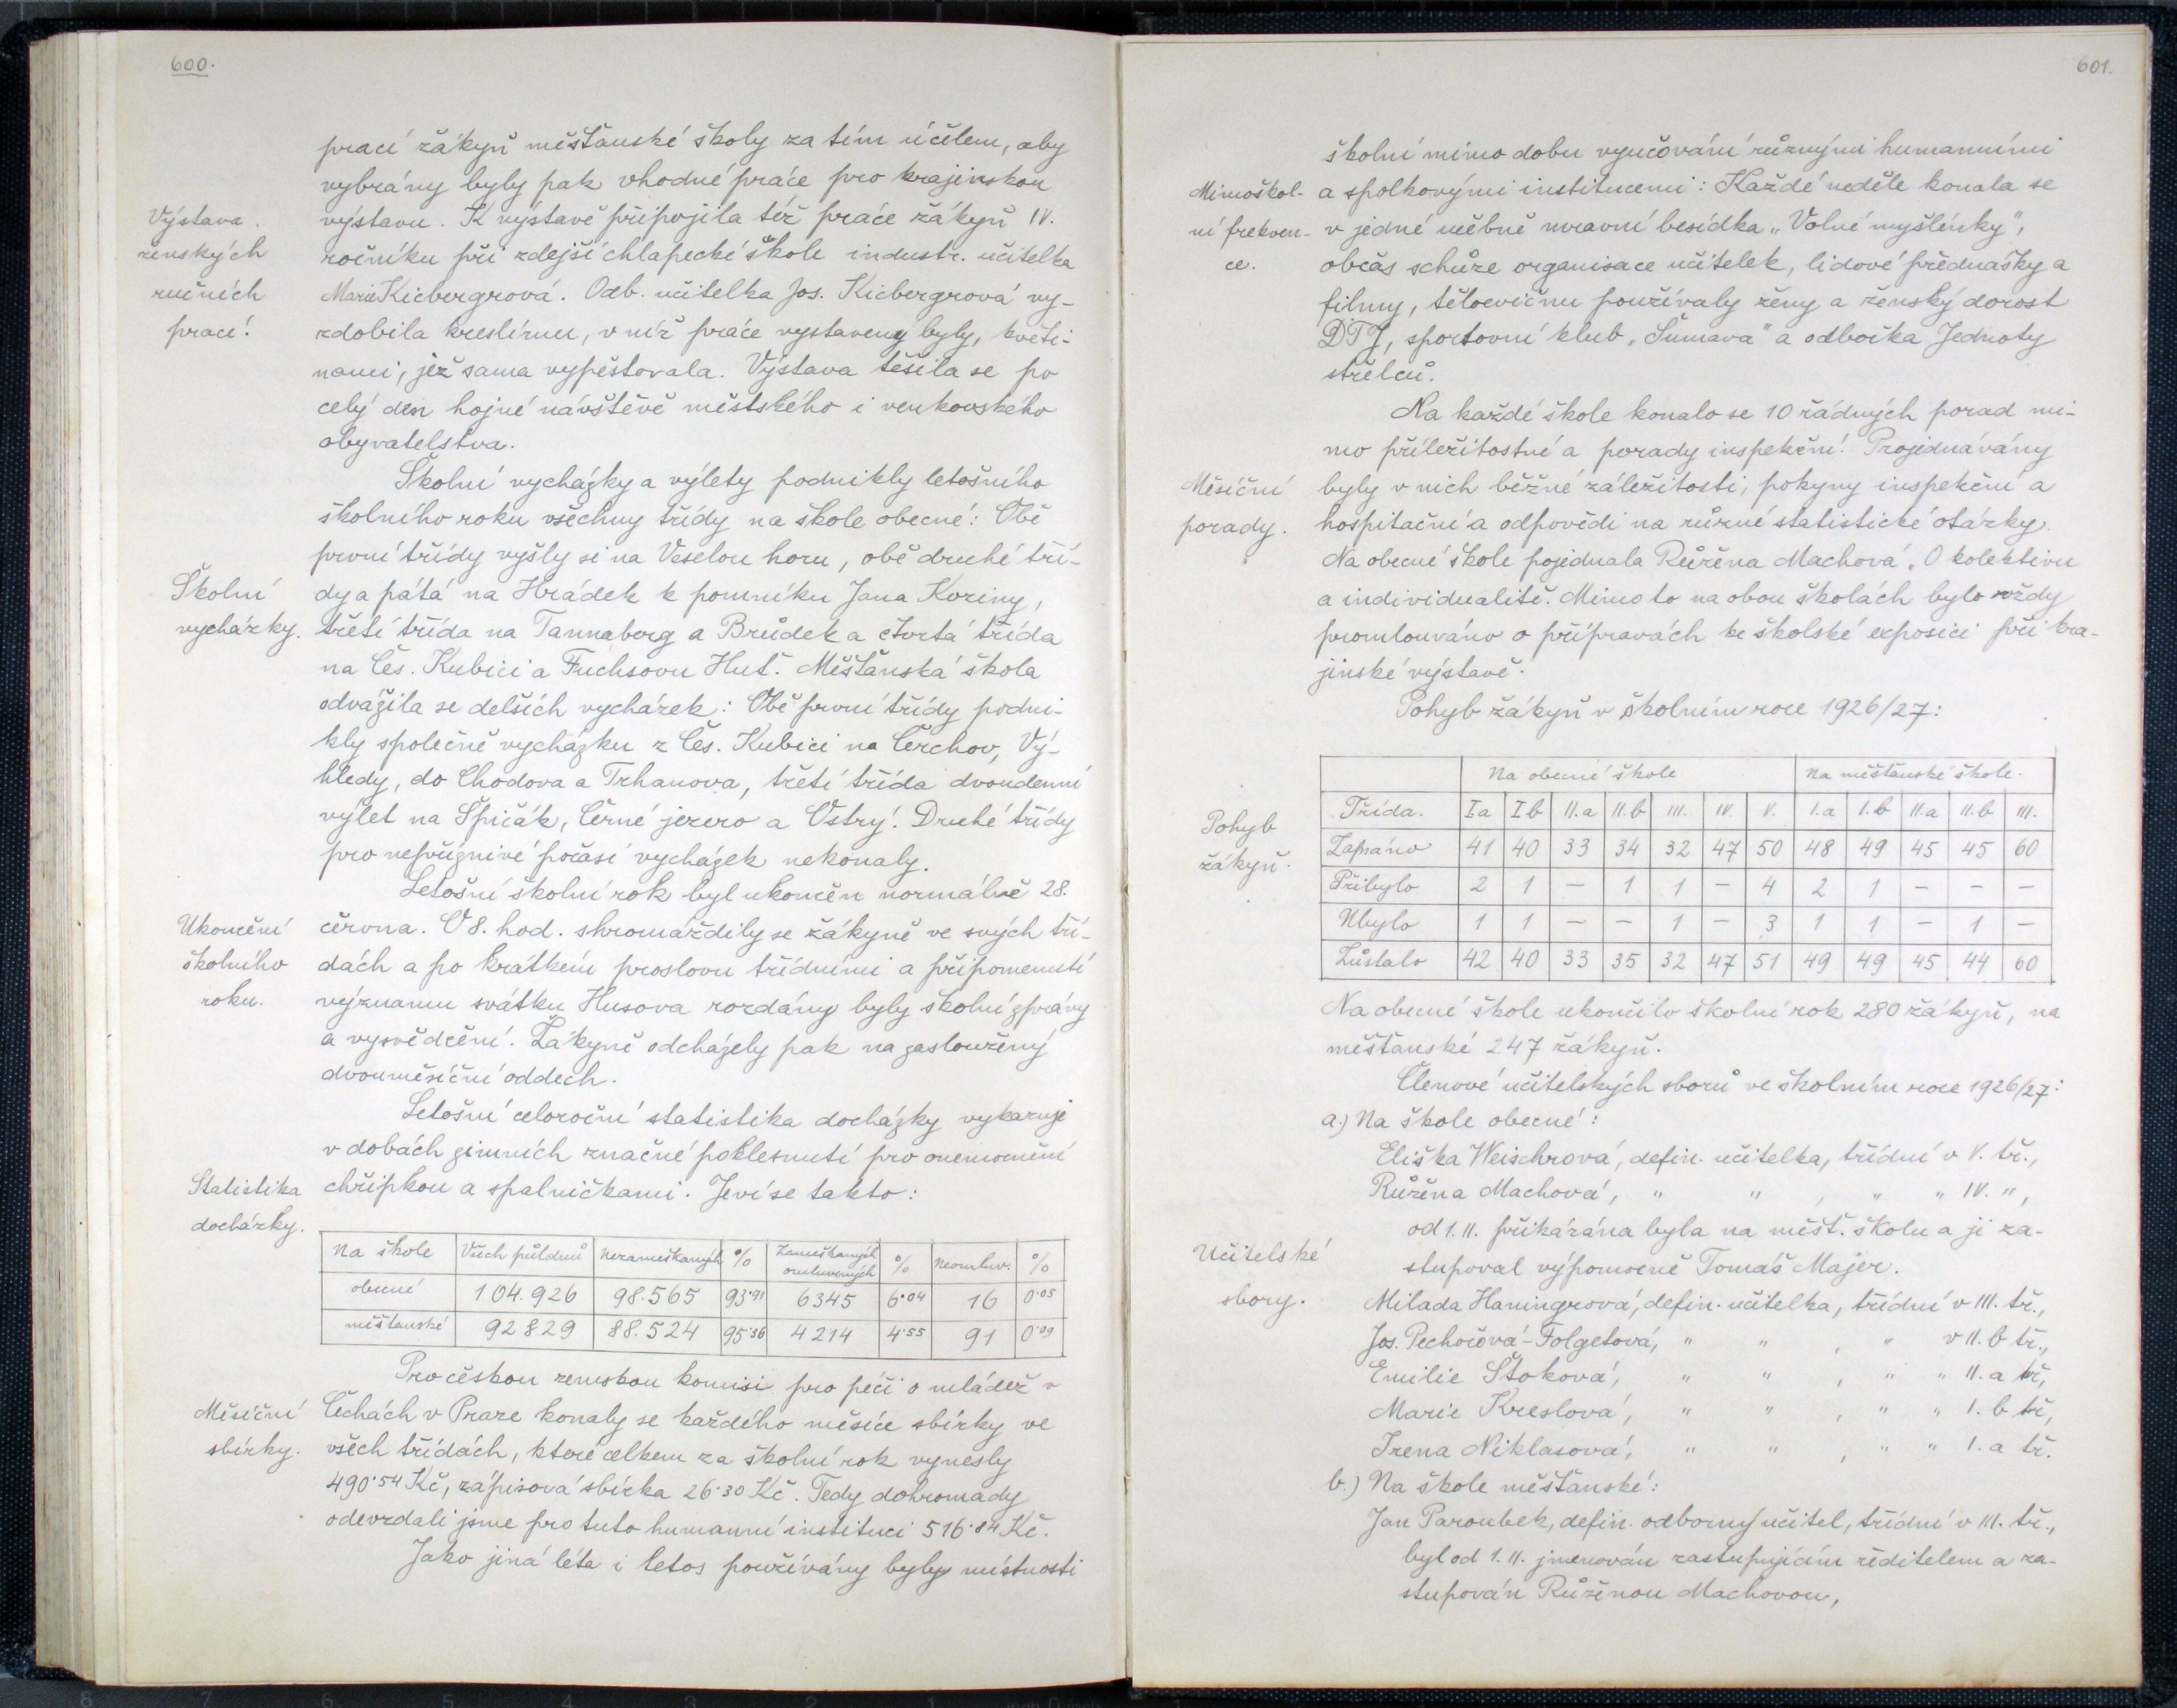 600.
prací žákyň měšťanské školy za tím účelem, aby
vybrány byly pak vhodné práce pro krajinskou
Výstava
výstavu. K výstavě připojila též práce žákyň IV.
ženských
ročníku při zdejší chlapecké škole industr. učitelka
ručních
Marie Kicbergrová. Odb. učitelka Jos. Kicbergrová vy-
prací.
zdobila kreslírnu, v níž práce vystaveny byly, květi-
nami, jež sama vypěstovala. Výstava těšila se po
celý den hojné návštěvě městského i venkovského
obyvatelstva.
Školní vycházky a výlety podnikly letošního
školního roku všechny třídy na škole obecné: Obě
první třídy vyšly si na Veselou horu, obě druhé tří-
Školní
dy a pátá na Hrádek k pomníku Jana Koziny,
vycházky.
třetí třída na Tannaberg a Brůdek a čtvrtá třída
na Čes. Kubici a Fuchsovu Huť. Měšťanská škola
odvážila se delších vycházek: Obě první třídy podni-
kly společně vycházku z Čes. Kubici na Čerchov, Vý-
hledy, do Chodova a Trhanova, třetí třída dvoudenní
výlet na Špičák, Černé jezero a Ostrý. Druhé třídy
pro nepříznivé počasí vycházek nekonaly.
Letošní školní rok byl ukončen normálně 28.
Ukončení
června. O 8. hod. shromáždily se žákyně ve svých tří-
školního
dách a po krátkém proslovu třídními a připomenutí
roku.
významu svátku Husova rozdány byly školní zprávy
a vysvědčení. Žákyně odcházely pak na zasloužený
dvouměsíční oddech.
Letošní celoroční statistika docházky vykazuje
v dobách zimních značné poklesnutí pro onemocnění
Statistika
chřipkou a spalničkami. Jeví se takto:
docházky.
Na škole Všech půldnů nezameškaných % Zameškaných omluvených % neomluv. %
obecné 104.926 98.565 93·91 6345 6·04 16 0·05
měšťanské 92829 88.524 95·36 4214 4·55 91 0·09
Pro českou zemskou komisi pro péči o mládež v
Měsíční
Čechách v Praze konaly se každého měsíce sbírky ve
sbírky.
všech třídách, které celkem za školní rok vynesly
490·54 Kč, zápisová sbírka 26·30 Kč. Tedy dohromady
odevzdali jsme pro tuto humanní instituci 516·84 Kč.
Jako jiná léta i letos používány byly místnosti
601.
školní mimo dobu vyučování různými humanními
Mimoškol-
a spolkovými institucemi: Každé neděle konala se
ní frekven-
v jedné učebně mravní besídka „Volné myšlénky",
ce.
občas schůze organisace učitelek, lidové přednašky a
filmy, tělocvičnu používaly ženy a ženský dorost
DTJ, sportovní klub „Šumava" a odbočka Jednoty
střelců.
Na každé škole konalo se 10 řádných porad mi-
mo příležitostné a porady inspekční. Projednávány
Měsíční
byly v nich běžné záležitosti, pokyny inspekční a
porady.
hospitační a odpovědi na různé statistické otázky.
Na obecné škole pojednala Růžena Machová „O kolektivu
a individualitě. Mimo to na obou školách bylo vždy
promlouváno o přípravách ke školské exposici při kra-
jinské výstavě.
Pohyb žákyň v školním roce 1926/27:
Na obecné škole Na měšťanské škole.
Pohyb
žákyň.
Třída. Ia Ib II.a II.b III. IV. V. I.a I.b II.a II.b III.
Zapsáno 41 40 33 34 32 47 50 48 49 45 45 60
Přibylo 2 1 – 1 1 – 4 2 1 – – –
Ubylo 1 1 – – 1 – 3 1 1 – 1 –
Zůstalo 42 40 33 35 32 47 51 49 49 45 44 60
Na obecné škole ukončilo školní rok 280 žákyň, na
měšťanské 247 žákyň.
Členové učitelských sborů ve školním roce 1926/27:
a.) Na škole obecné:
Eliška Weischrová, defin. učitelka, třídní v V. tř.,
Růžena Machová, " " , " " IV. ",
od 1.II. přikázána byla na měšť. školu a ji za-
Učitelské
stupoval výpomocně Tomáš Majer.
sbory.
Milada Haningrová, defin. učitelka, třídní v III. tř.,
Jos. Pechočová-Folgetová, " " , " v II. b tř.,
Emilie Štoková, " " , " " II. a tř,
Marie Kreslová, " " , " " I. b tř,
Irena Niklasová, " " , " " I. a tř.
b.) Na škole měšťanské:
Jan Paroubek, defin. odborný učitel, třídní v III. tř.,
byl od 1.II. jmenován zastupujícím ředitelem a za-
stupován Růženou Machovou,